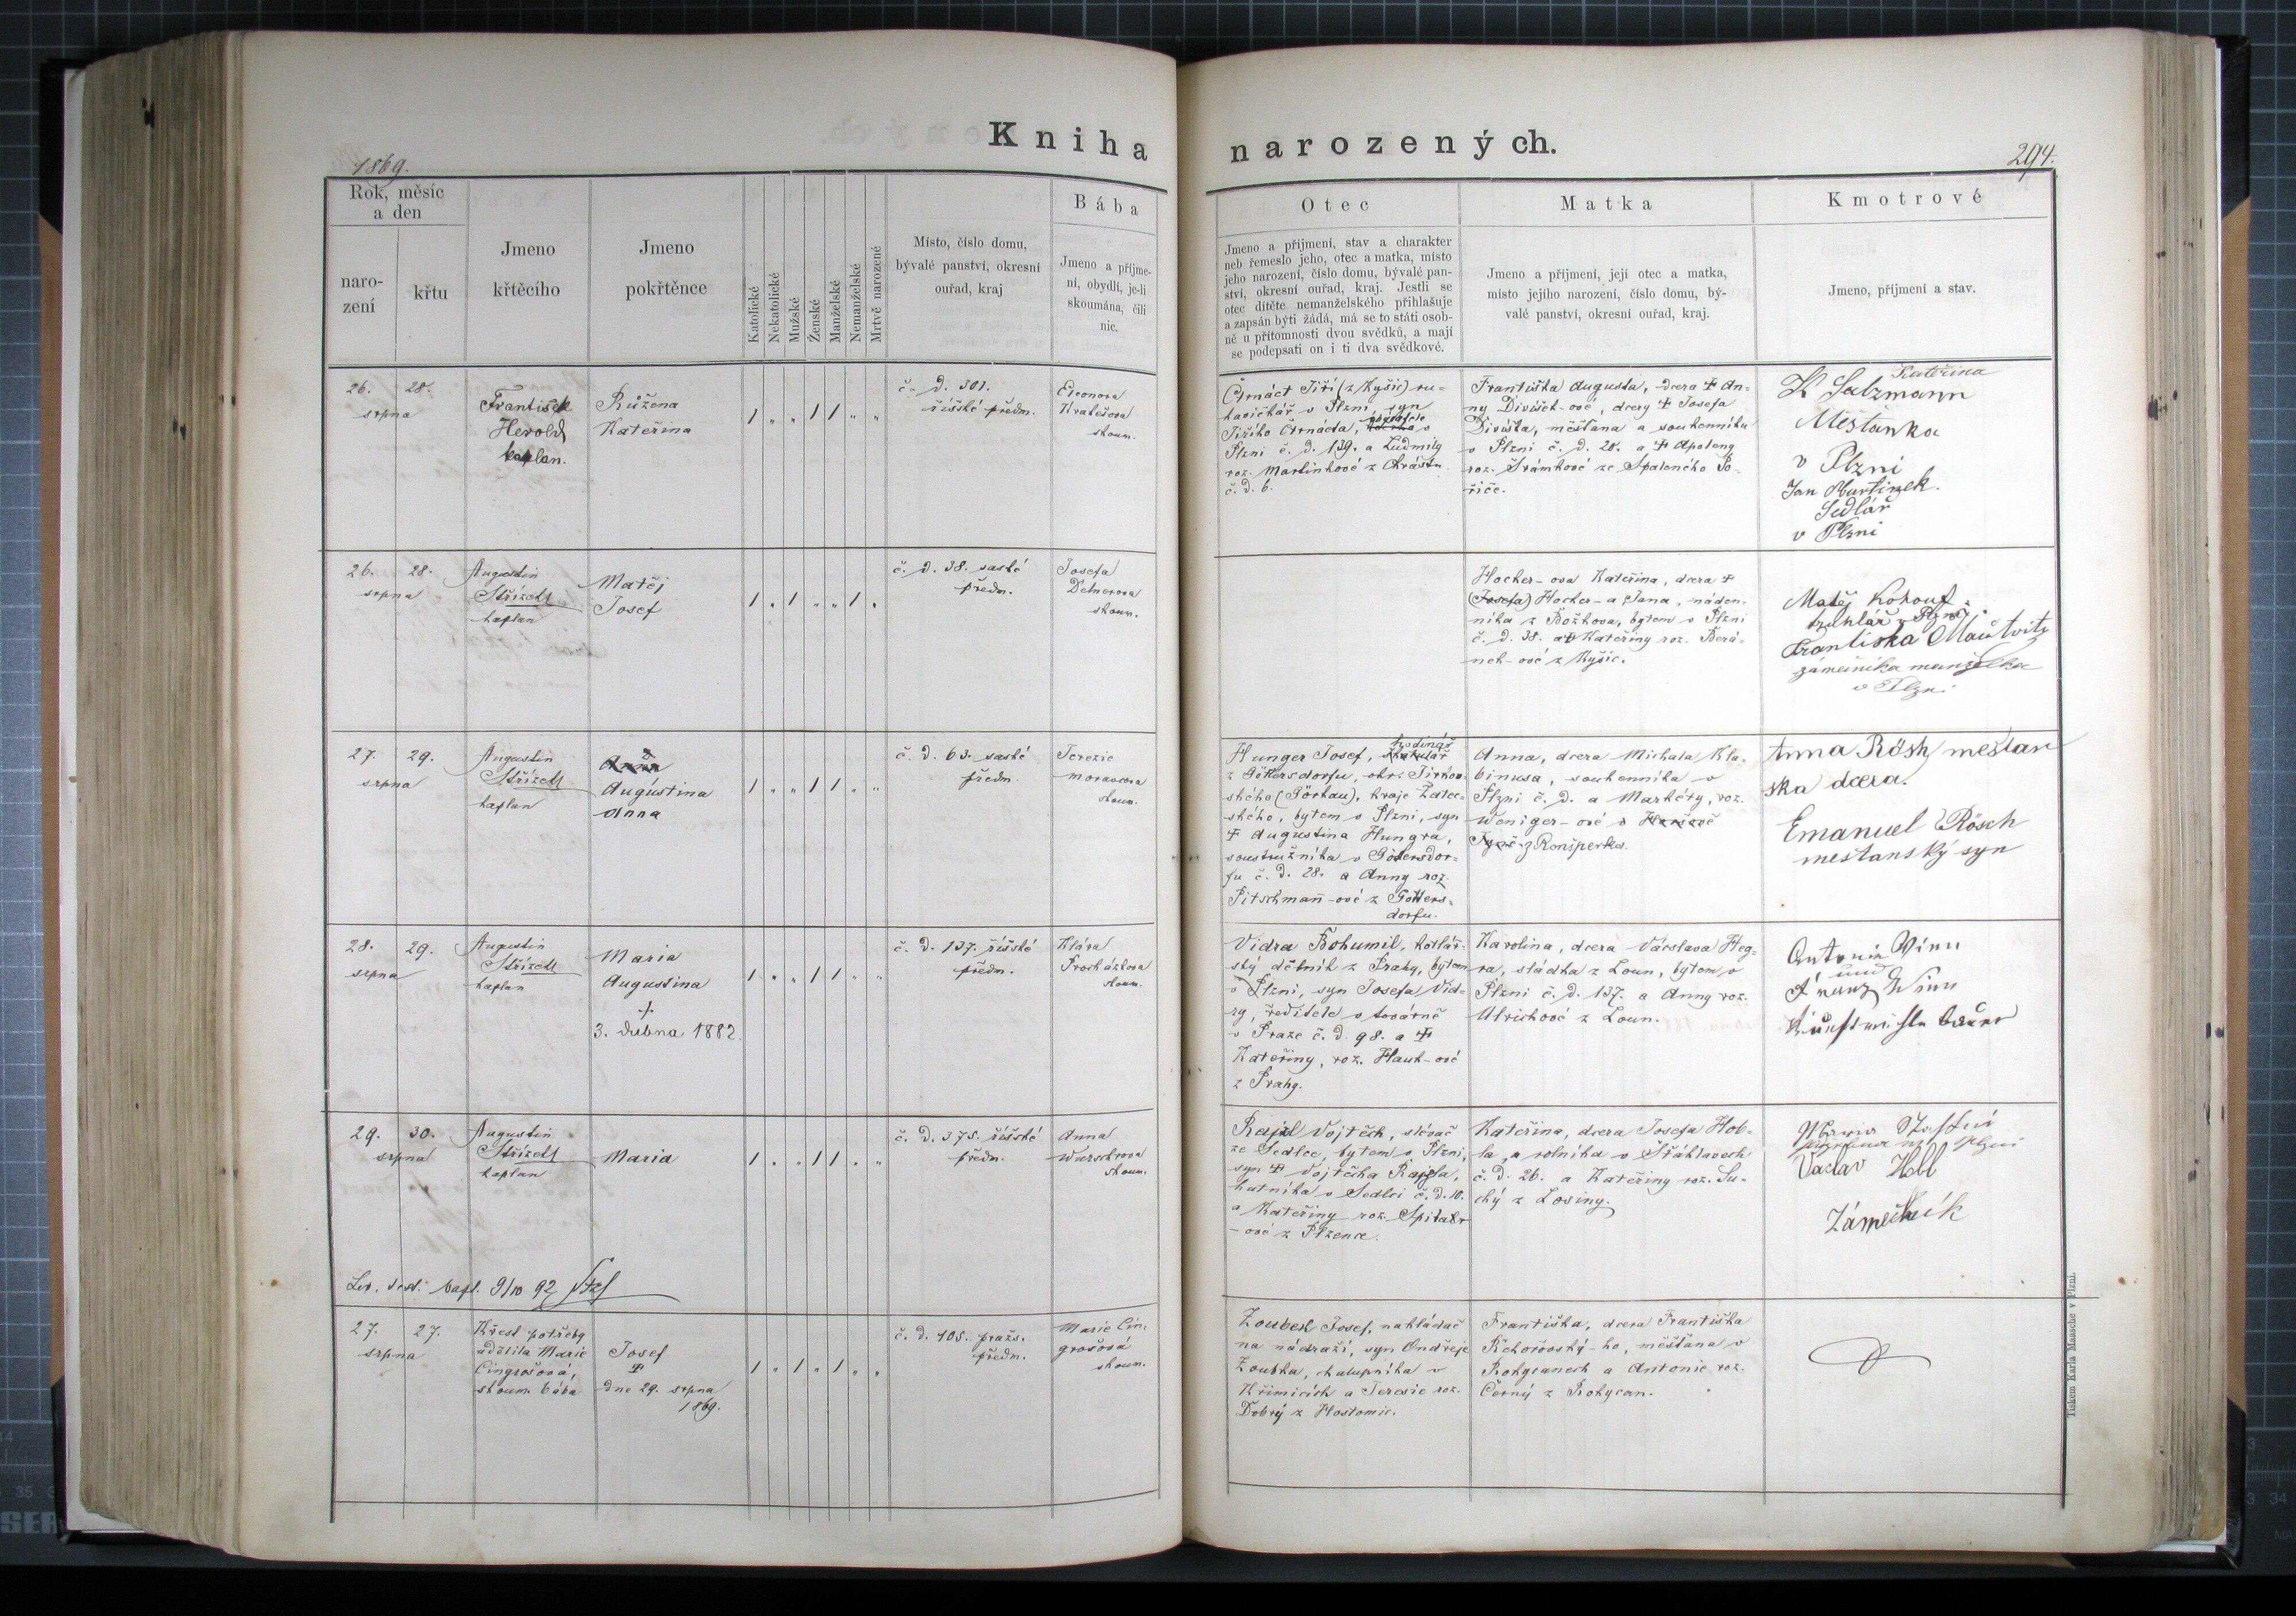 Kniha
narozených.
1869.
294.
Rok, měsíc
a den
naro-
zení
křtu
Jmeno
křtěcího
Jmeno
pokřtěnce
Katolické
Nekatolické
Mužské
Ženské
Manželské
Nemanželské
Mrtvě narozené
Místo, číslo domu,
bývalé panství, okresní
ouřad, kraj
Bába
Jmeno a příjme-
ní, obydlí, je-li
skoumána, čili
nic.
Otec
Jmeno a příjmení, stav a charakter
neb řemeslo jeho, otec a matka, místo
jeho narození, číslo domu, bývalé pan-
ství, okresní ouřad, kraj. Jestli se
otec dítěte nemanželského přihlašuje
a zapsán býti žádá, má se to státi osob-
ně u přítomnosti dvou svědků, a mají
se podepsati on i ti dva svědkové.
Matka
Jmeno a příjmení, její otec a matka,
místo jejího narození, číslo domu, bý-
valé panství, okresní ouřad, kraj.
Kmotrové
Jmeno, příjmení a stav.
26. 28.
srpna
František
Herold
kaplan.
Růžena
Kateřina
1 „ „ 1 1 „ „
č. d. 301.
říšské předm.
Eleonora
Kratešova
skoum.
Črnáct Jiří (z Kyšic) ru-
kavičkář v Plzni, syn
Jiřího Črnácta, v
Plzni č. d. 139. a Ludmily
roz. Martinkové z Chrástu
č. d. 6.
Františka Augusta, dcera † An-
ny Divíšek-ové, dcery † Josefa
Divíška, měšťana a soukenníka
v Plzni č. d. 20. a † Apoleny
roz. Šrámkové ze Spáleného Po-
říče.
Kateřina
K Salzmann
Měšťanka
v Plzni
Jan Martinek.
Sedlář
v Plzni
26. 28.
srpna
Augustin
Střízek
kaplan
Matěj
Josef
1 „ 1 „ „ 1 „
č. d. 38. saské
předm.
Josefa
Detnerova
skoum.
Hocker-ova Kateřina, dcera †
(Josefa) Hocker-a Jana, náden-
níka z Božkova, bytem v Plzni
č. d. 38. a † Kateřiny roz. Berá-
nek-ové z Kyšic.
Matěj Kohout
truhlář v Plzni
Františka
zámečníka manželka
v Plzni
27. 29.
srpna
Augustin
Střízek
kaplan
Anna
Augustina
Anna
1 „ „ 1 1 „ „
č. d. 63. saské
předm.
Terezie
Moravcova
skoum.
hodinář
Hunger Josef,
z Göttersdorfu, okr. Jirkov-
ského (Görkau), kraje Žatec-
ského, bytem v Plzni, syn
† Augustina Hungra,
soustružníka v Göttersdor-
fu č. d. 28. a Anny roz.
Pitschmann-ové z Götters-
dorfu.
Anna, dcera Michala Kla-
binusa, soukenníka v
Plzni č. d. a Markéty, roz.
Weniger-ové
z Ronšperka.
Anna Rösch mešťan
ska dcera.
Emanuel Rösch
mešťanský syn
28. 29.
srpna
Augustin
Střízek
kaplan
Maria
Augustina
†
3. dubna 1882.
1 „ „ 1 1 „ „
č. d. 137. říšské
předm.
Klára
Procházkova
skoum.
Vidra Bohumil, kotlář-
ský dělník z Prahy, bytem
v Plzni, syn Josefa Vid-
ry, ředitele v továrně
v Praze č. d. 98. a †
Kateřiny, roz. Hauk-ové
z Prahy.
Karolina, dcera Václava Heg-
ra, sládka z Loun, bytem v
Plzni č. d. 137. a Anny roz.
Ulrichové z Loun.
Antonia Winn
und
Franz Winn
29. 30.
srpna
Augustin
Střízek
kaplan
Maria
1 „ „ 1 1 „ „
č. d. 375. říšské
předm.
Anna
Wurschrova
skoum.
Rajzl Vojtěch, slévač
ze Sedlce, bytem v Plzni,
syn † Vojtěcha Rajzla,
hutníka v Sedlci č. d. 10.
a Kateřiny roz. Spitaler
-ové z Plzence.
Kateřina, dcera Josefa Hob-
la, rolníka v Štáhlavech
č. d. 26. a Kateřiny roz. Su-
chý z Losiny.
Vaclav Hobl
Zámečník
9/10 92
27. 27.
srpna
Křest potřeby
udělila Marie
Cingrošová,
skoum. bába
Josef
†
dne 29. srpna
1869.
1 „ 1 „ 1 „ „
č. d. 105. pražs.
předm.
Marie Cin-
grošová
skoum.
Zoubek Josef, nakládač
na nádraží, syn Ondřeje
Zoubka, chalupníka v
Křimicích a Terezie roz.
Dobrý z Hostomic.
Františka, dcera Františka
Řehořovský-ho, měšťana v
Rokycanech a Antonie roz.
Černý z Rokycan.
Tiskem Karla Maasche v Plzni.